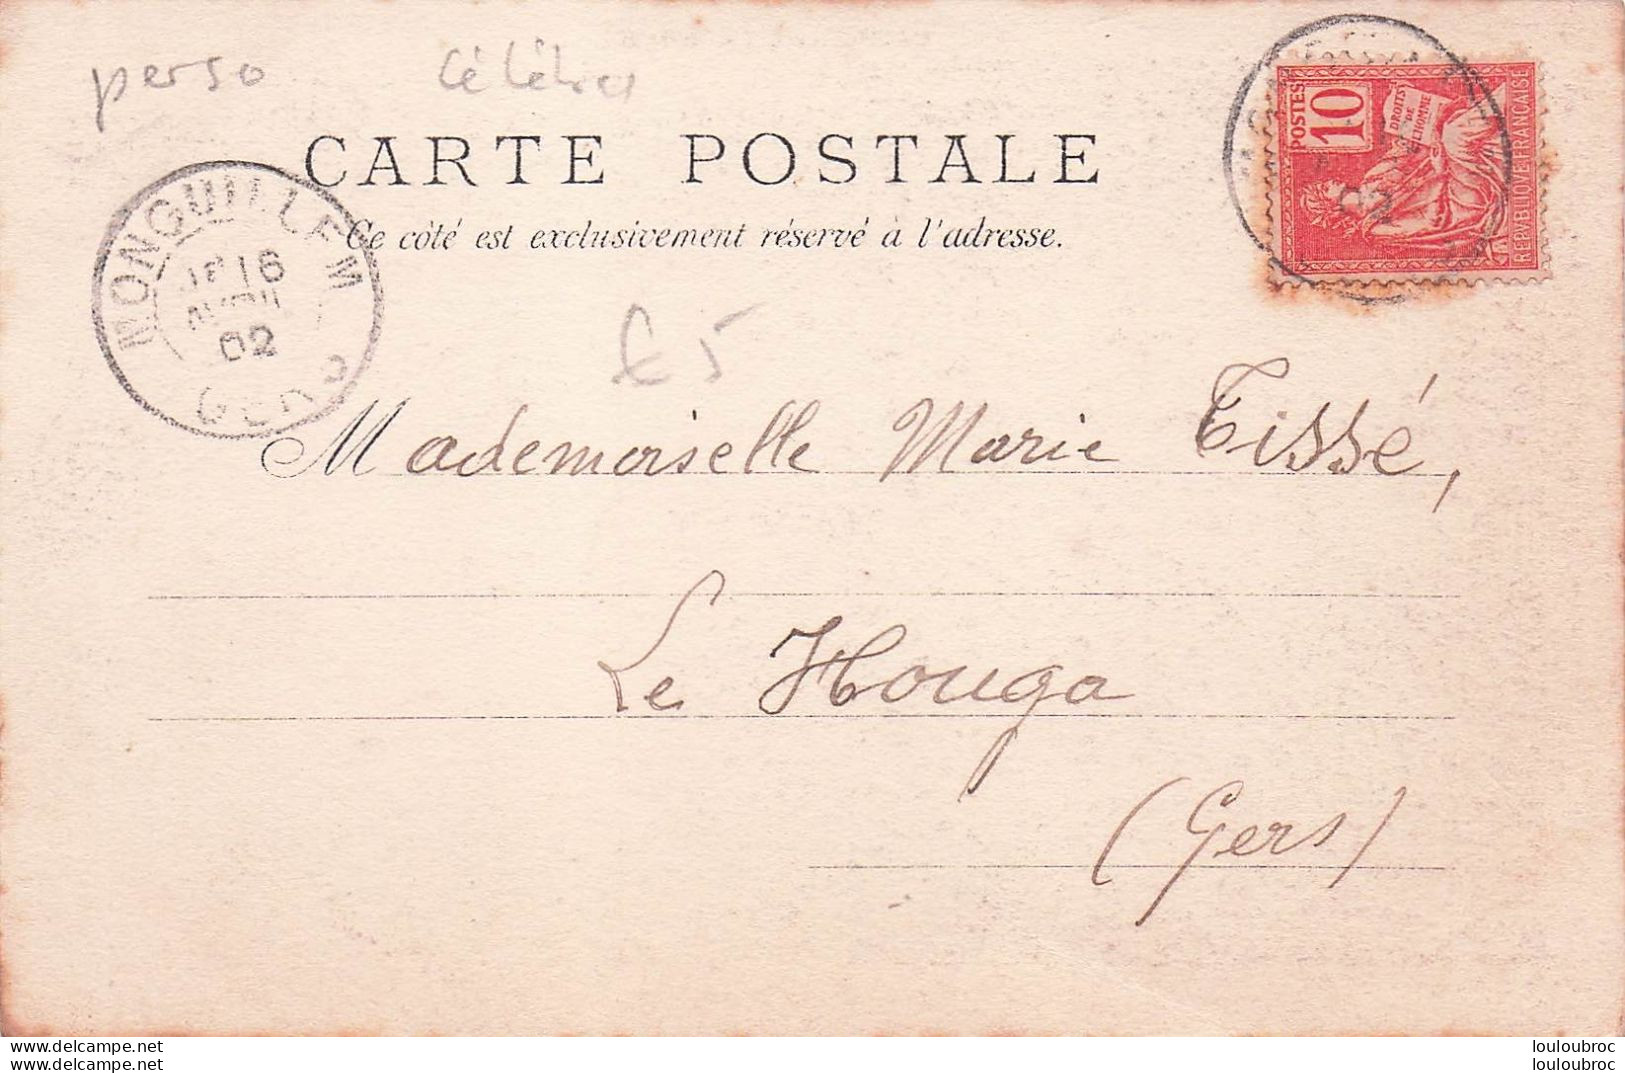 perso célèbres
CARTE POSTALE
Ce côté est exclusivement réservé à l'adresse.
MONGUILLEM
16
AVRIL
02
GERS
POSTES
10
DROITS
DE
L'HOMME
REPVBLIQVE FRANÇAISE
02
€5
Mademoiselle Marie Tissé,
Le Houga
(Gers)
www.delcampe.net
www.delcampe.net
louloubroc
louloubroc